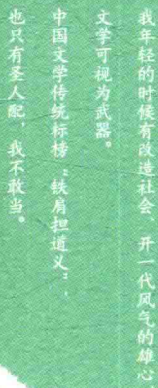 我年轻的时候有改造社会、开一代风气的雄心
文学可视为武器。
中国文学传统标榜“铁肩担道义”，
也只有圣人配，我不敢当。